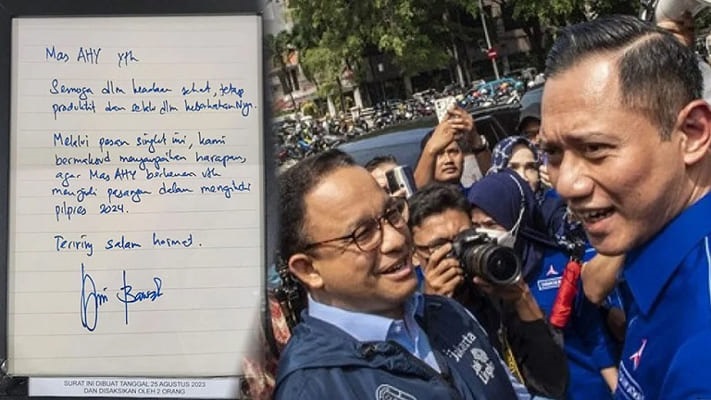 Mas AHY yth
Semoga dlm keadaan sehat, tetap
produktif dan selalu dlm keberkahanNya.
Melalui pesan singkat ini, kami
bermaksud menyampaikan harapan,
agar Mas AHY berkenan utk
menjadi pasangan dalam mengikuti
pilpres 2024.
Teriring salam hormat.
SURAT INI DIBUAT TANGGAL 25 AGUSTUS 2023
DAN DISAKSIKAN OLEH 2 ORANG
Jakarta